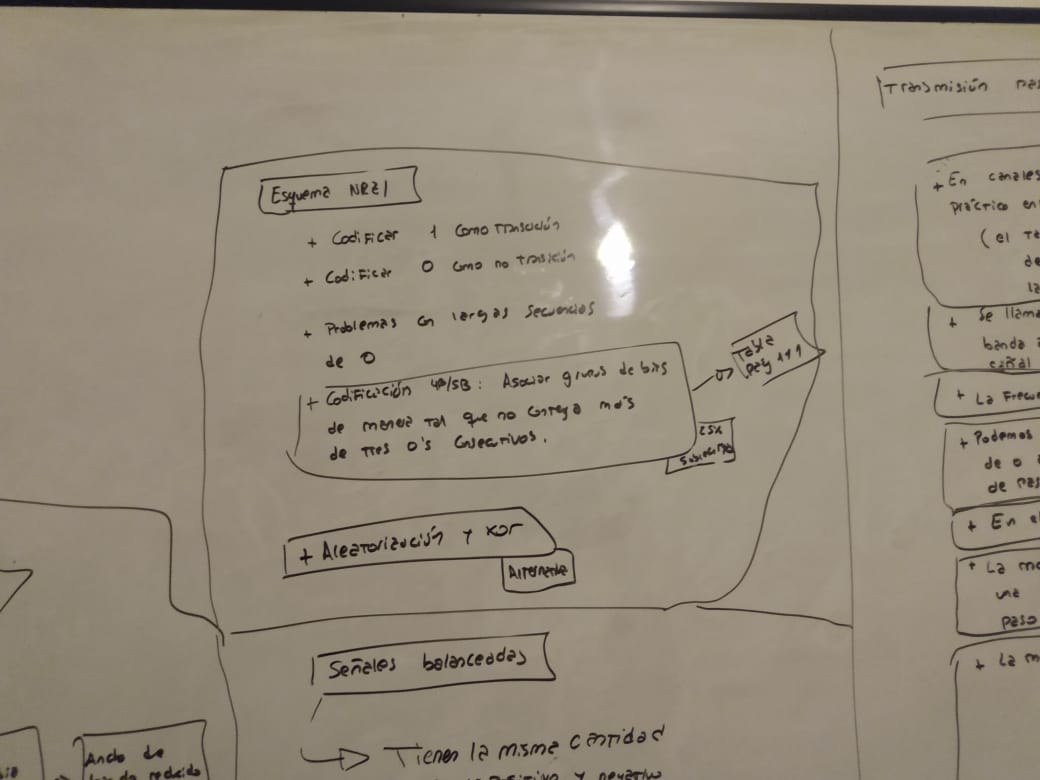 Esquema NRZI
+ Codificar 1 como transición
+ Codificar 0 como no transición
+ Problemas con largas secuencias
de 0
+ Codificación 4B/5B: Asociar grupos de bits
de manera tal que no contenga más
de tres 0's consecutivos.
Tabla
pag 111
25%
+ Aleatorización y xor
Alternativa
Señales balanceadas
Tienen la misma cantidad
y negativo
Ancho de
banda reducido
Transmisión
+ En canales
práctico en
(el
de
la
+ Se llama
banda
canal
+ La Frecu
+ Podemos
de 0 a
de pas
+ En el
+ La
una
paso
+ La m